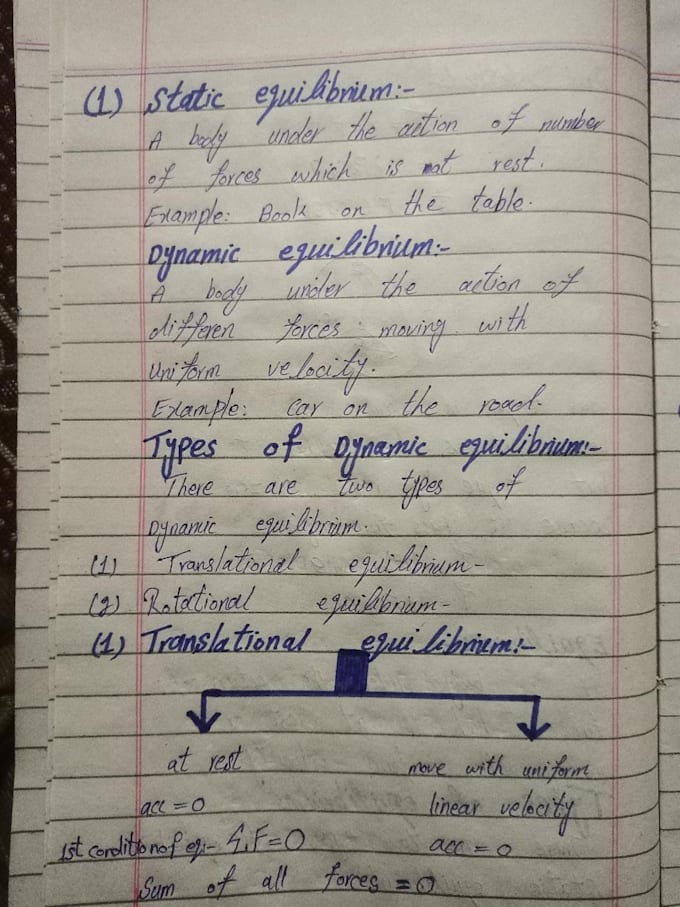 (1) Static equilibrium:-
A body under the action of number
of forces which is at rest.
Example: Book on the table.
Dynamic equilibrium:-
A body under the action of
differen forces moving with
uniform velocity.
Example: car on the road-
Types of Dynamic equilibrium:-
There are two types of
Dynamic equilibrium.
(1) Translational equilibrium-
(2) Rotational equilibrium-
(1) Translational equilibrium:-
at rest
acc = 0
move with uniform
linear velocity
acc = 0
1st condition of eq:- F = 0
Sum of all forces = 0